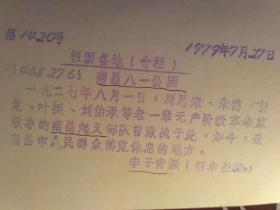 第1420号
1979年7月27日
祖国各地(专栏)
(46827б) 南昌八一公园
一九二七年八月一日，周恩来、朱德、贺
龙、叶挺、刘伯承等老一辈无产阶级革命家
领导的南昌起义部队曾激战于此，如今，是
南昌市人民群众游览休息的地方。
李子青摄(新华社稿)